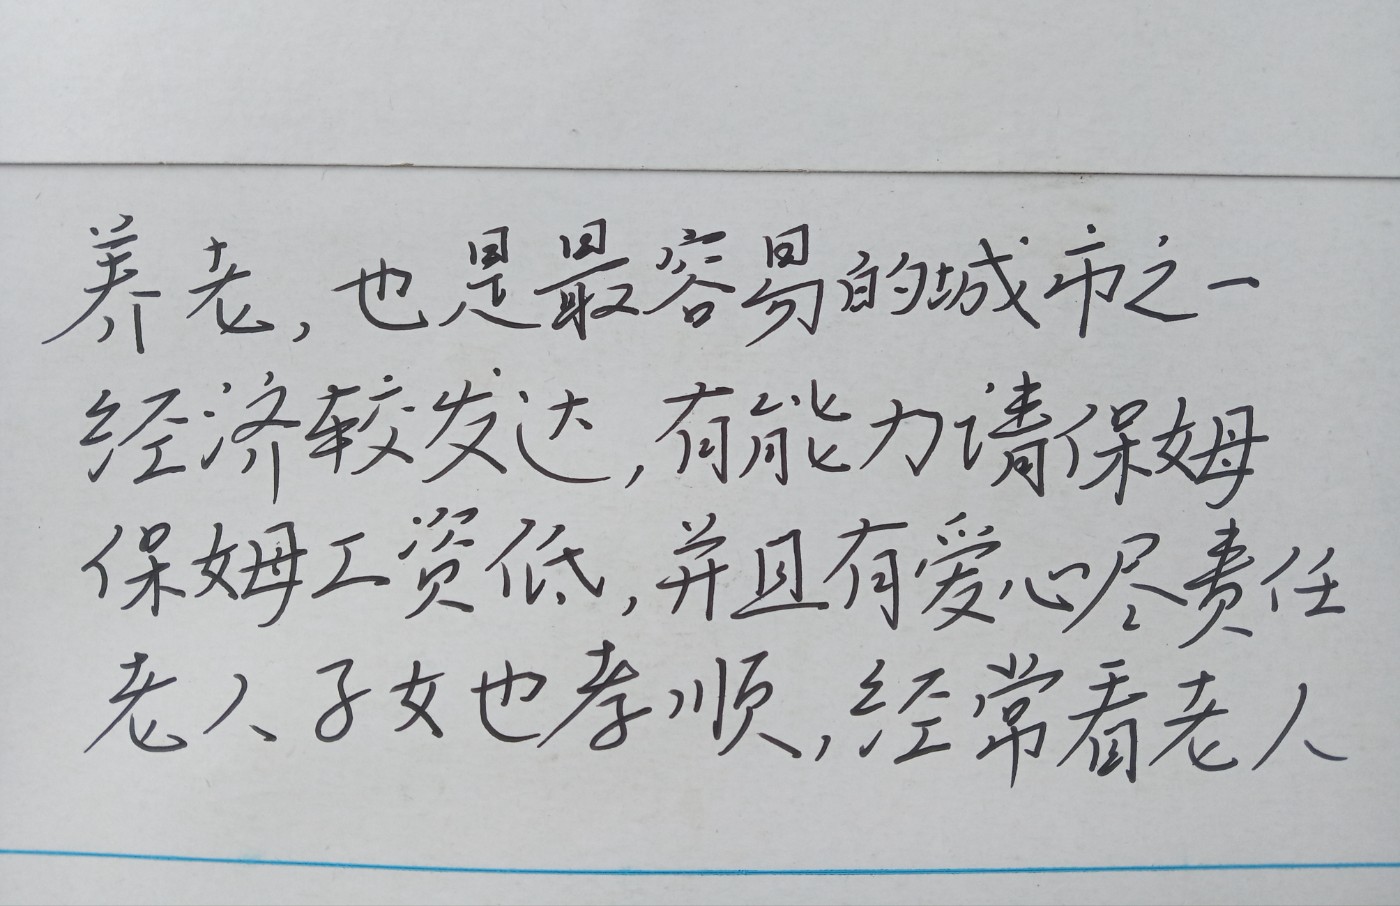 养老,也是最容易的城市之一
经济较发达,有能力请保姆
保姆工资低,并且有爱心尽责任
老人子女也孝顺,经常看老人